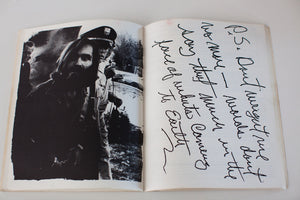 P.S. Don't misquote me
no man — words don't
say that much in the
face of what's coming
to Earth